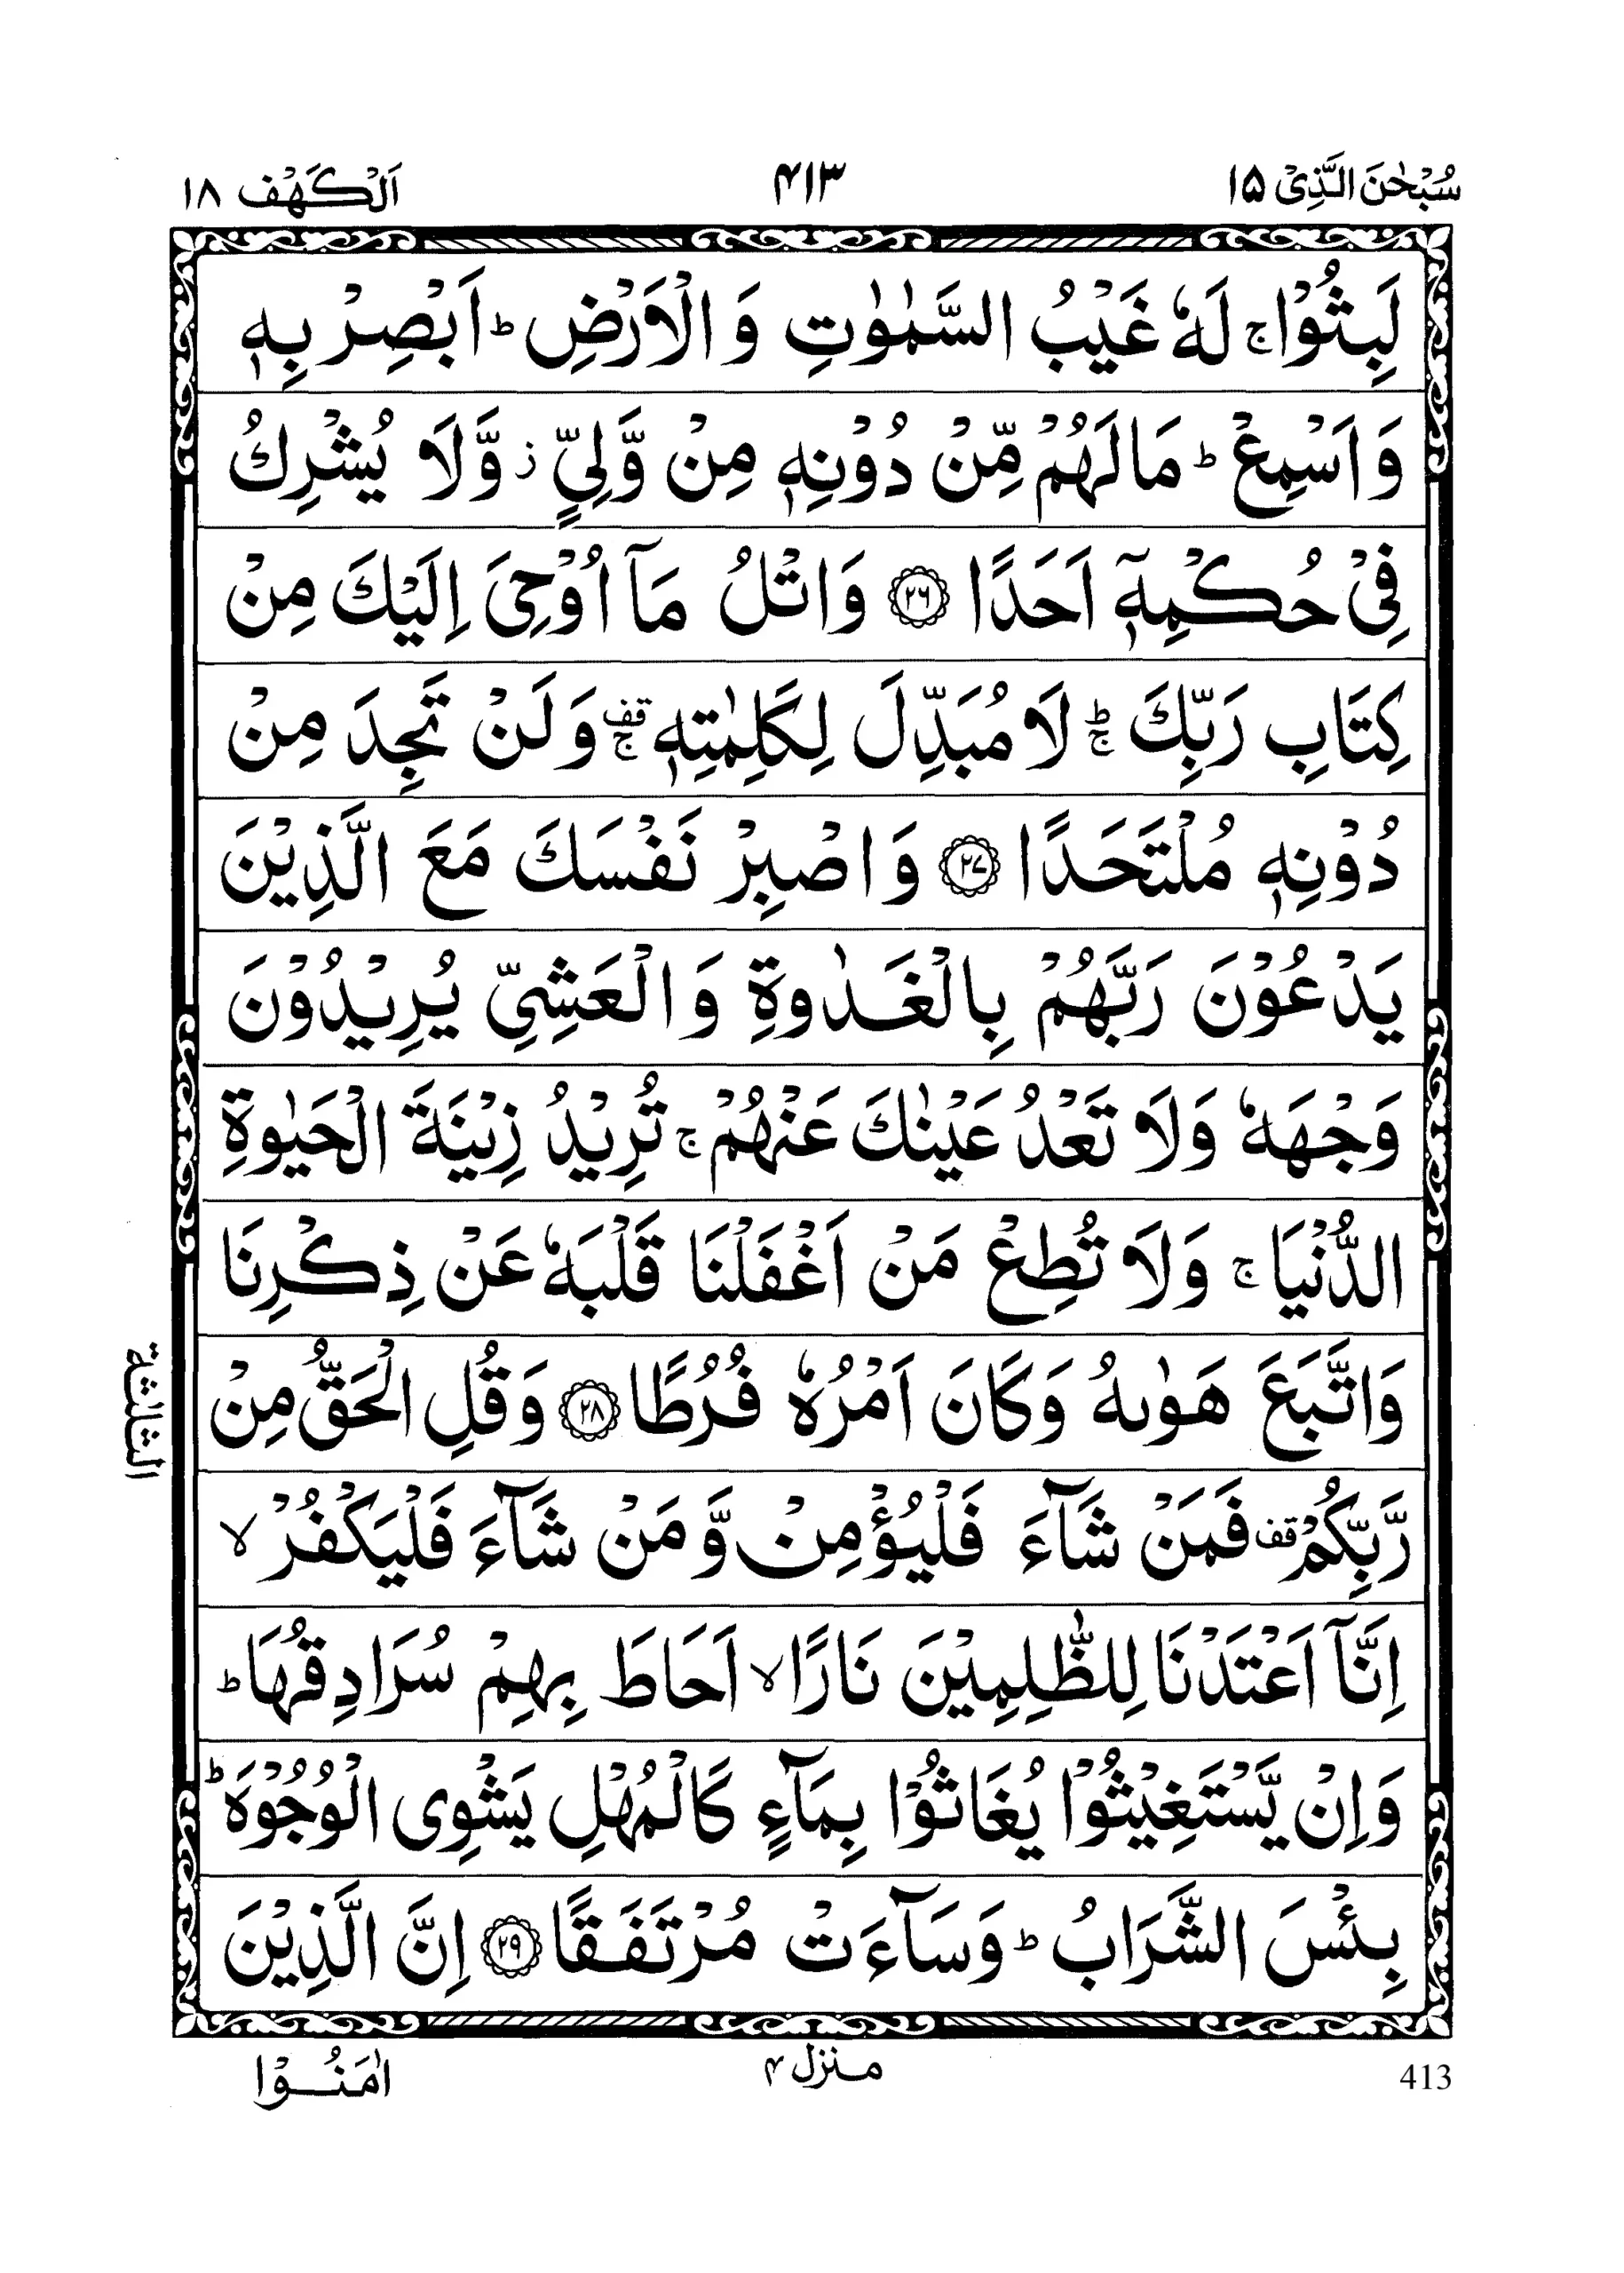 سُبْحٰنَ الَّذِیْ ١٥
٤١٣
اَلْكَهْف ١٨
لَبِثُوْا ۚ لَهٗ غَیْبُ السَّمٰوٰتِ وَ الْاَرْضِ ؕ اَبْصِرْ بِهٖ
وَ اَسْمِعْ ؕ مَا لَهُمْ مِّنْ دُوْنِهٖ مِنْ وَّلِیٍّ ؗ وَّ لَا یُشْرِكُ
فِیْ حُكْمِهٖۤ اَحَدًا ﴿۲۶﴾ وَ اتْلُ مَاۤ اُوْحِیَ اِلَیْكَ مِنْ
كِتَابِ رَبِّكَ ؕۚ لَا مُبَدِّلَ لِكَلِمٰتِهٖ قف ۚ وَ لَنْ تَجِدَ مِنْ
دُوْنِهٖ مُلْتَحَدًا ﴿۲۷﴾ وَ اصْبِرْ نَفْسَكَ مَعَ الَّذِیْنَ
یَدْعُوْنَ رَبَّهُمْ بِالْغَدٰوةِ وَ الْعَشِیِّ یُرِیْدُوْنَ
وَجْهَهٗ وَ لَا تَعْدُ عَیْنٰكَ عَنْهُمْ ۚ تُرِیْدُ زِیْنَةَ الْحَیٰوةِ
الدُّنْیَا ۚ وَ لَا تُطِعْ مَنْ اَغْفَلْنَا قَلْبَهٗ عَنْ ذِكْرِنَا
وَ اتَّبَعَ هَوٰىهُ وَ كَانَ اَمْرُهٗ فُرُطًا ﴿۲۸﴾ وَ قُلِ الْحَقُّ مِنْ
رَّبِّكُمْ قف فَمَنْ شَآءَ فَلْیُؤْمِنْ وَّ مَنْ شَآءَ فَلْیَكْفُرْ ۙ
اِنَّاۤ اَعْتَدْنَا لِلظّٰلِمِیْنَ نَارًا ۙ اَحَاطَ بِهِمْ سُرَادِقُهَا ؕ
وَ اِنْ یَّسْتَغِیْثُوْا یُغَاثُوْا بِمَآءٍ كَالْمُهْلِ یَشْوِی الْوُجُوْهَ ؕ
بِئْسَ الشَّرَابُ ؕ وَ سَآءَتْ مُرْتَفَقًا ﴿۲۹﴾ اِنَّ الَّذِیْنَ
الثالثة
413
منزل ۴
اٰمَنُوْا